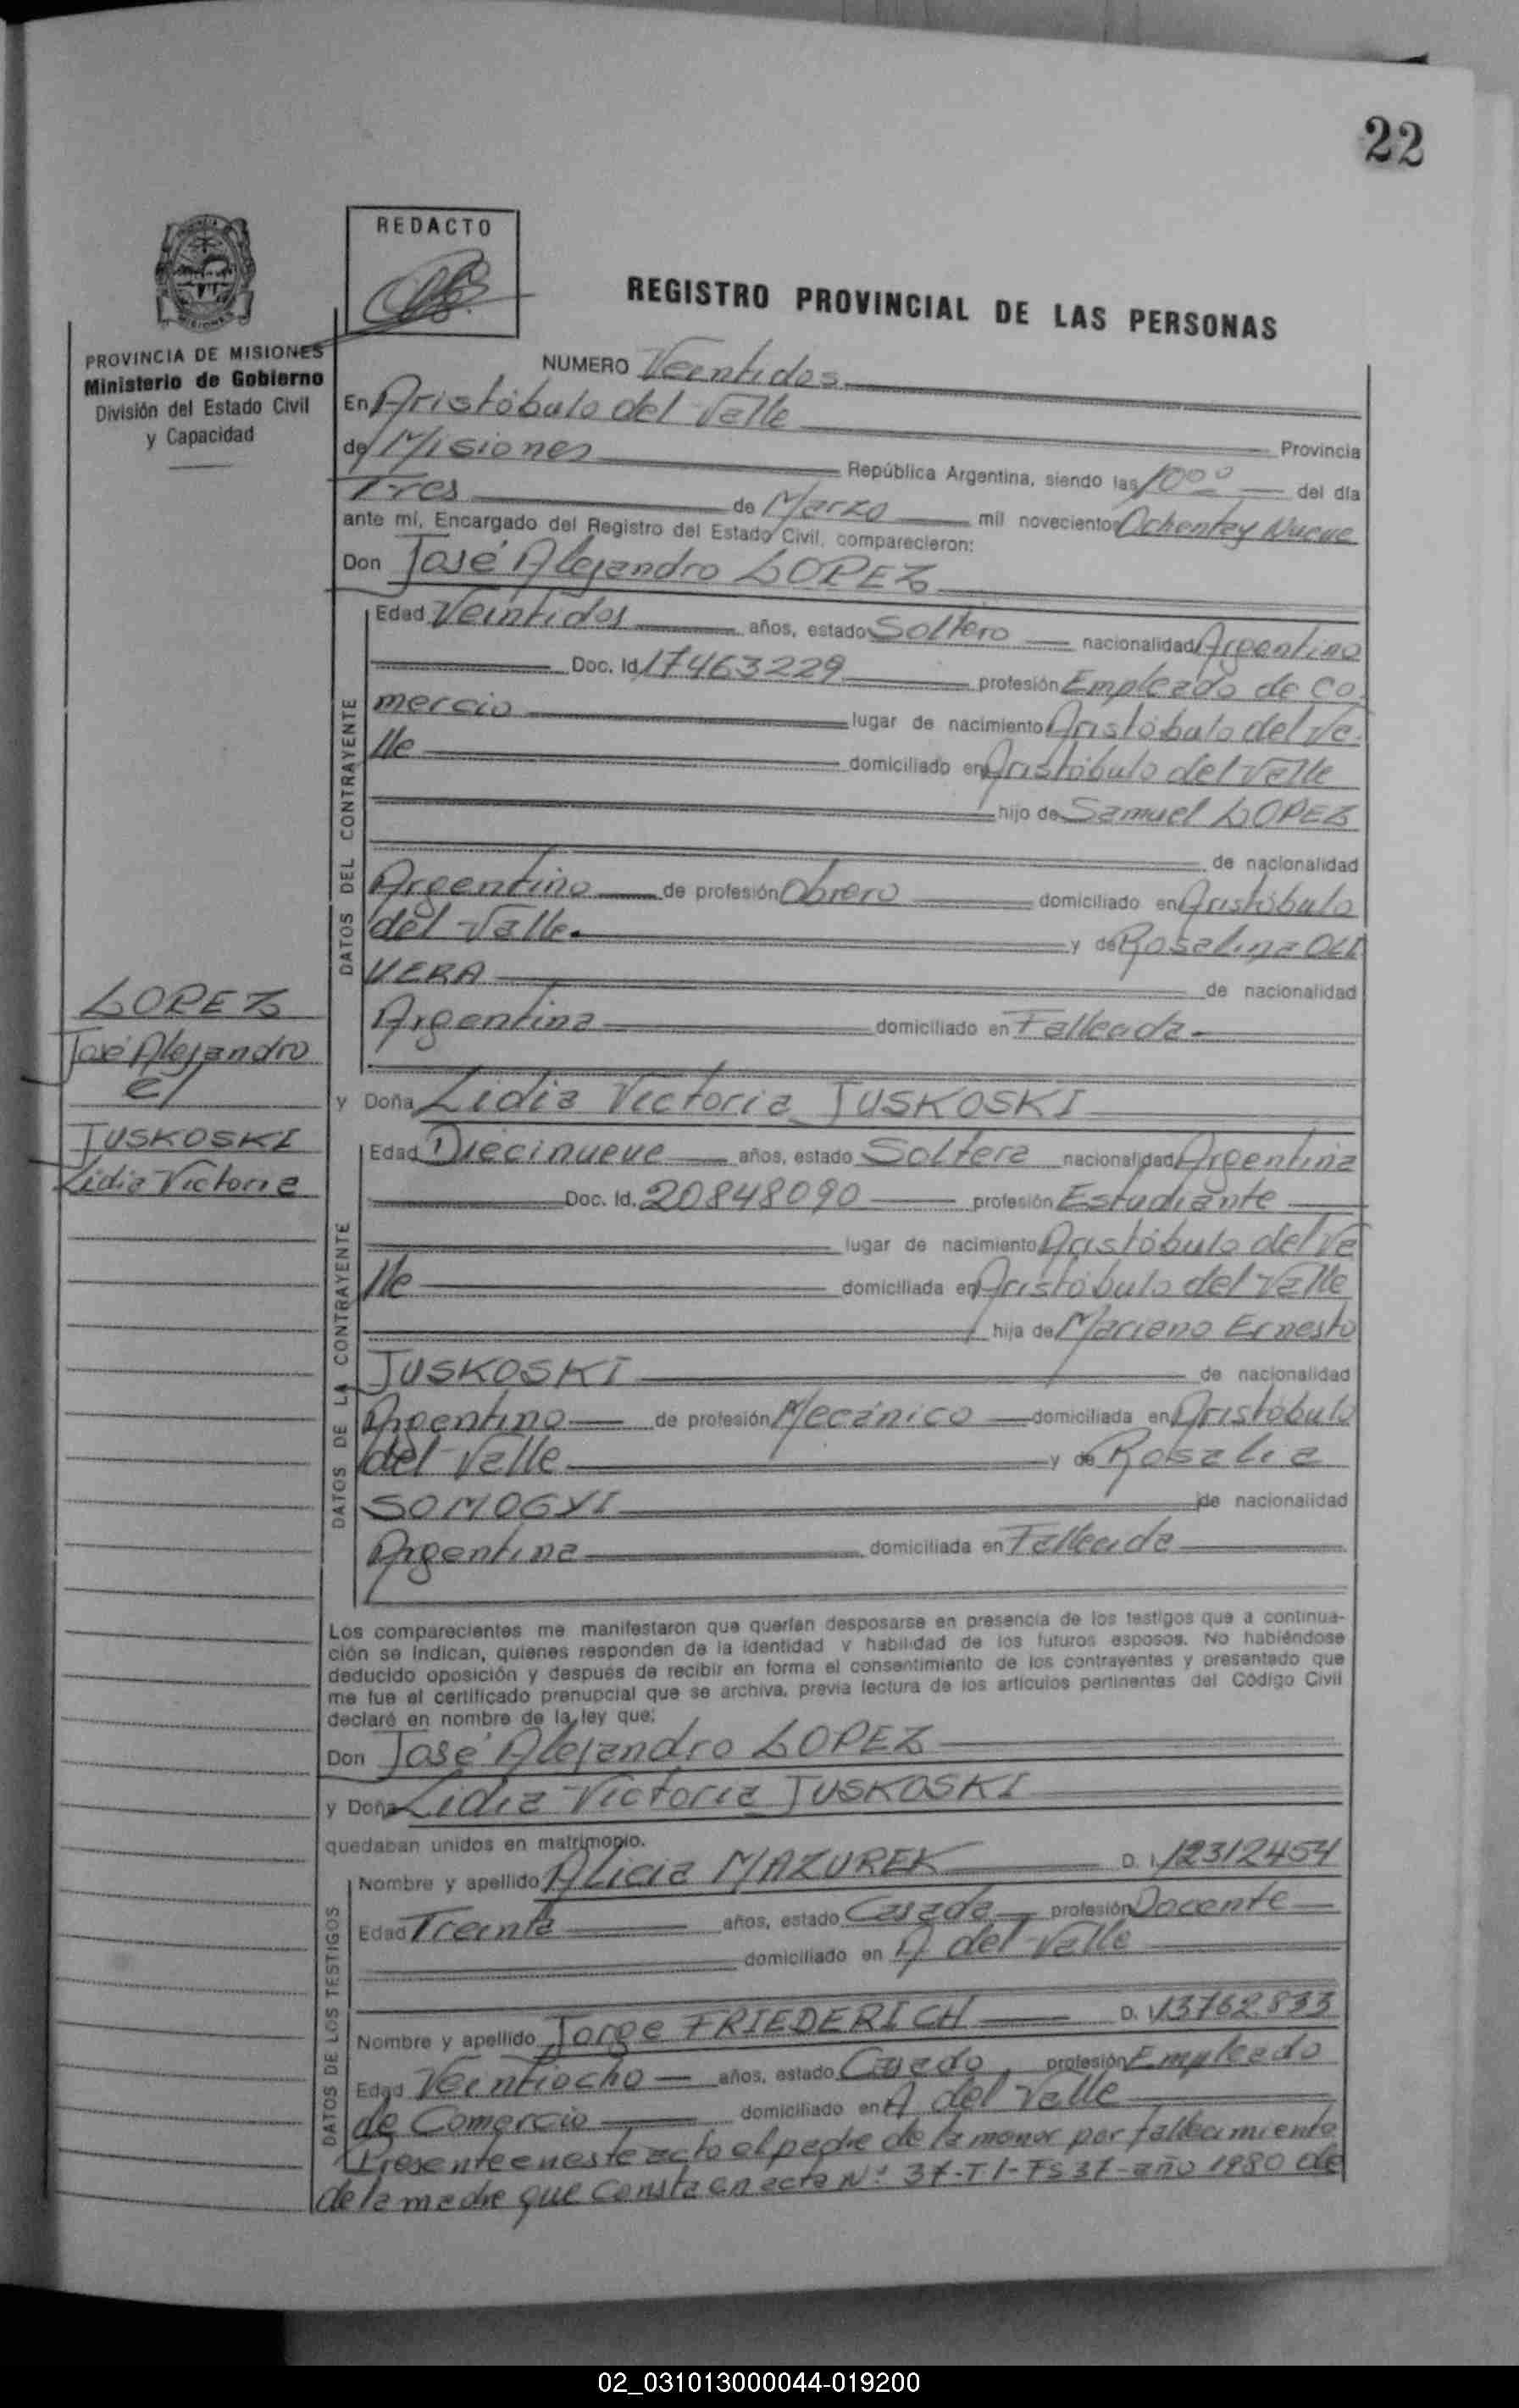 22
REDACTO
REGISTRO PROVINCIAL DE LAS PERSONAS
PROVINCIA DE MISIONES
Ministerio de Gobierno
División del Estado Civil
y Capacidad
NUMERO Veintidos
En Aristóbulo del Valle
Provincia
de Misiones República Argentina, siendo las 10 00 del día
Tres de Marzo mil novecientos Ochenta y Nueve
ante mí, Encargado del Registro del Estado Civil, comparecieron:
Don José Alejandro LOPEZ
DATOS DEL CONTRAYENTE
Edad Veintidos años, estado Soltero nacionalidad Argentino
Doc. Id. 17463229 profesión Empleado de Co
mercio lugar de nacimiento Aristóbulo del Va
lle domiciliado en Aristóbulo del Valle
hijo de Samuel LOPEZ
de nacionalidad
Argentino de profesión Obrero domiciliado en Aristóbulo
del Valle. y de Rosalina OLI
VERA de nacionalidad
Argentina domiciliado en Fallecida
LOPEZ
José Alejandro
c/
JUSKOSKI
Lidia Victoria
y Doña Lidia Victoria JUSKOSKI
DATOS DE LA CONTRAYENTE
Edad Diecinueve años, estado Soltera nacionalidad Argentina
Doc. Id. 20848090 profesión Estudiante
lugar de nacimiento Aristóbulo del Va
lle domiciliada en Aristóbulo del Valle
hija de Mariano Ernesto
JUSKOSKI de nacionalidad
Argentino de profesión Mecánico domiciliada en Aristóbulo
del Valle y de Rosalia
SOMOGYI de nacionalidad
Argentina domiciliada en Fallecida
Los comparecientes me manifestaron que querían desposarse en presencia de los testigos que a continua-
ción se indican, quienes responden de la identidad y habilidad de los futuros esposos. No habiéndose
deducido oposición y después de recibir en forma el consentimiento de los contrayentes y presentado que
me fue el certificado prenupcial que se archiva, previa lectura de los artículos pertinentes del Código Civil
declaré en nombre de la ley que:
Don José Alejandro LOPEZ
y Doña Lidia Victoria JUSKOSKI
quedaban unidos en matrimonio.
DATOS DE LOS TESTIGOS
Nombre y apellido Alicia MAZUREK D. I. 12312454
Edad Treinta años, estado Casada profesión Docente
domiciliado en A del Valle
Nombre y apellido Jorge FRIEDERICH D. I. 13762833
Edad Veintiocho años, estado Casado, profesión Empleado
de Comercio domiciliado en A del Valle
Presente en este acto el padre de la menor por fallecimiento
de la madre que consta en acta Nº 37-T1-FS 37-año 1980 de
02_031013000044-019200